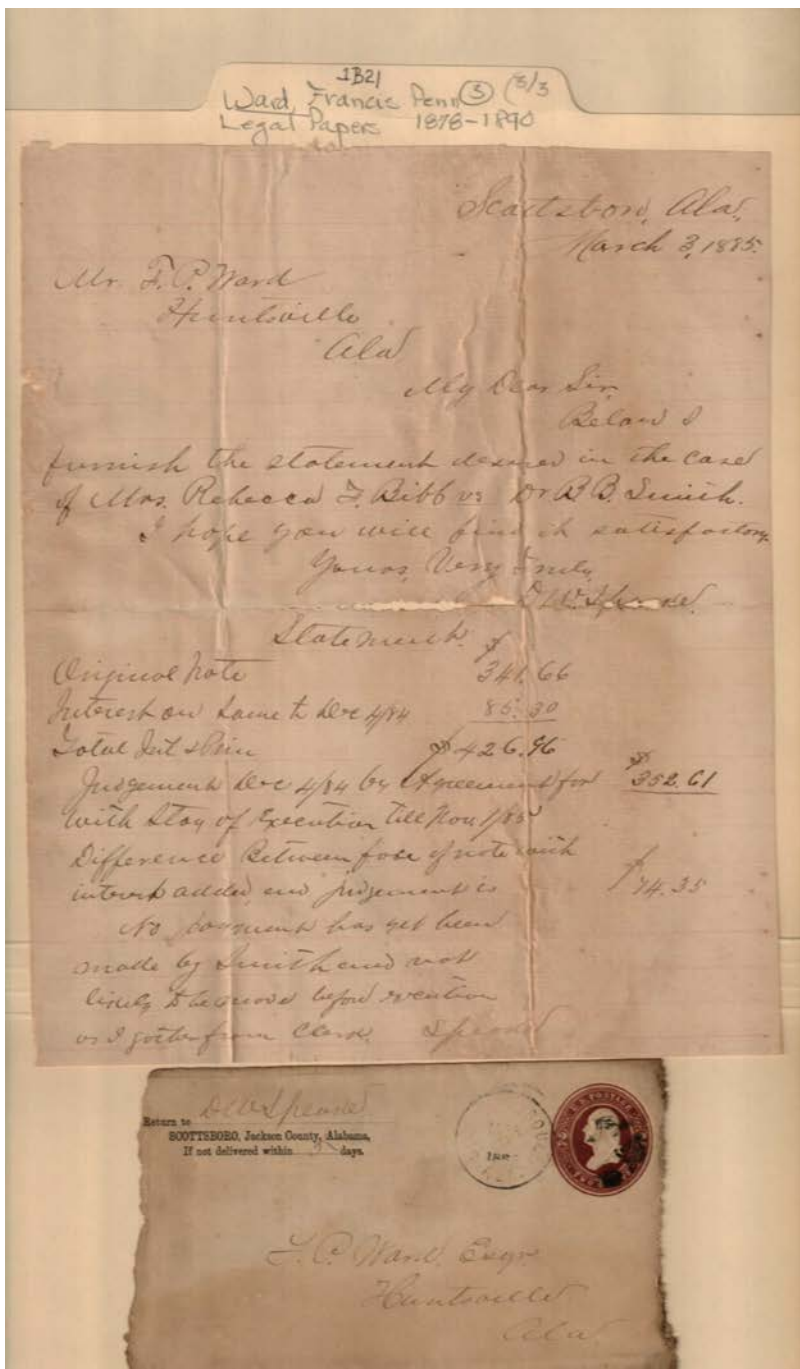 1B21
Ward, Francis Penn (3) (3/3
Legal Papers 1878-1890
Scottsboro, Ala.
March 3, 1885.
Mr. F. P. Ward
Huntsville
Ala
My Dear Sir,
Below I
furnish the statement desired in the case
of Mrs. Rebecca F. Bibb vs Dr B B. Smith.
I hope you will find it satisfactory
Yours, Very Truly,
D. W. Speake.
Statement. $
Original Note 341.66
Interest on Same to Dec 4/84 85.30
Total Int & Prin $426.96
Judgement Dec 4/84 by Agreement for $352.61
with Stay of Execution till Nov 1/85
Difference Between face of note with
interest added, and judgement is $74.35
No payment has yet been
made by Smith and not
likely to be made before execution
as I gather from Clerk. Speake
D W Speake
Return to
SCOTTSBORO, Jackson County, Alabama,
If not delivered within days.
F. P. Ward, Esqr
Huntsville
Ala